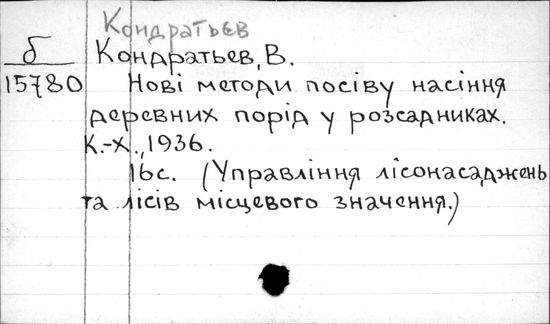 Кондратьєв
б
Кондратьєв, В.
15780
Нові методи посіву насіння
деревних порід у розсадниках.
К.-Х., 1936.
16с. (Управління лісонасаджень
та лісів місцевого значення.)